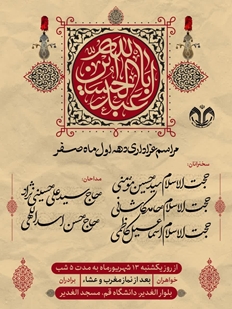 یا اباعبدالله الحسین
مراسم عزاداری دهه اول ماه صفر
سخنرانان:
حجت الاسلام سید حسین مومنی
حجت الاسلام حامد کاشانی
حجت الاسلام اسماعیل کاظمی
مداحان:
حاج سید علی حسینی نژاد
حاج حسن اسداللهی
از روز یکشنبه ۱۳ شهریورماه به مدت ۵ شب
خواهران بعد از نماز مغرب و عشاء برادران
بلوار الغدیر، دانشگاه قم، مسجد الغدیر